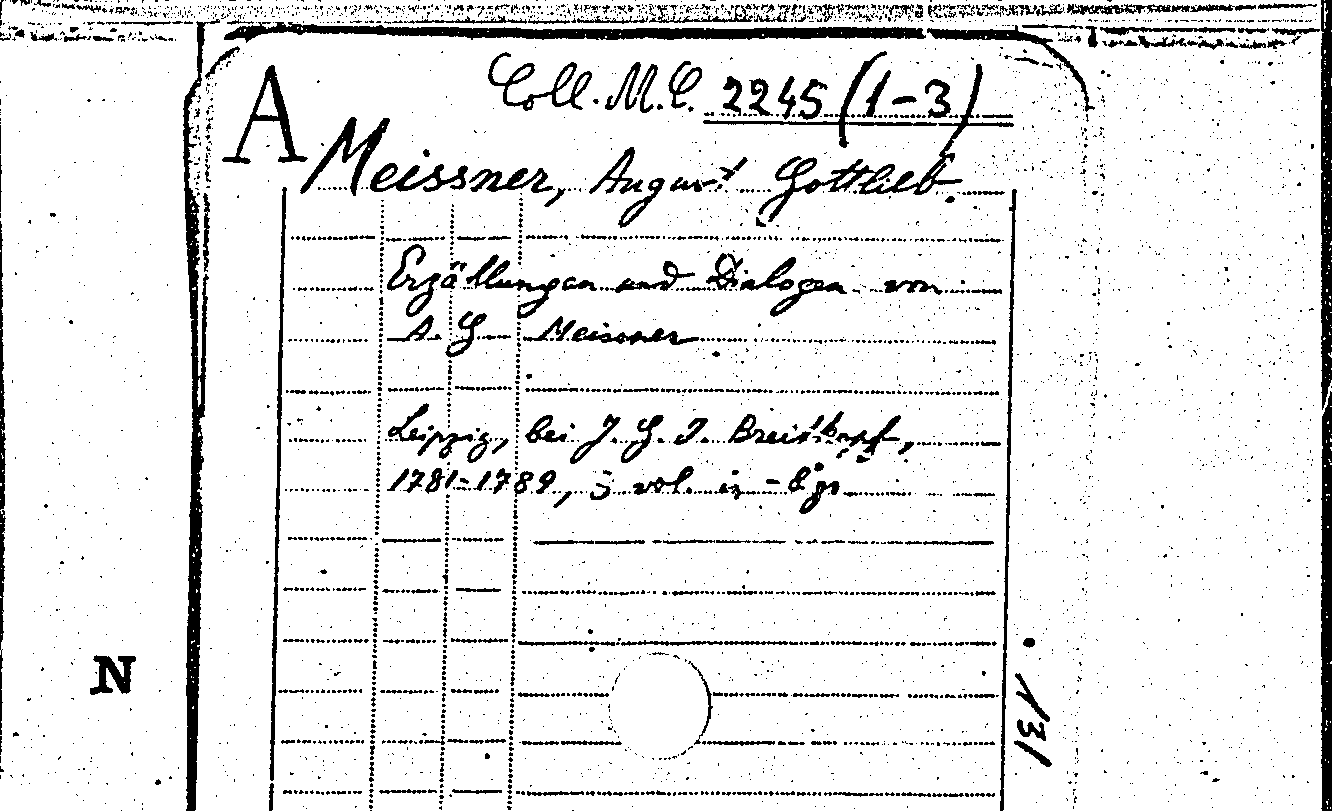 A
Coll. M.C. 2245 (1-3)
Meissner, August Gottlieb.
Erzählungen und Dialogen von
A. G Meissner
Leipzig, bei J. G. I. Breitkopf,
1781-1789, 3 vol. in-8° gr
N
131